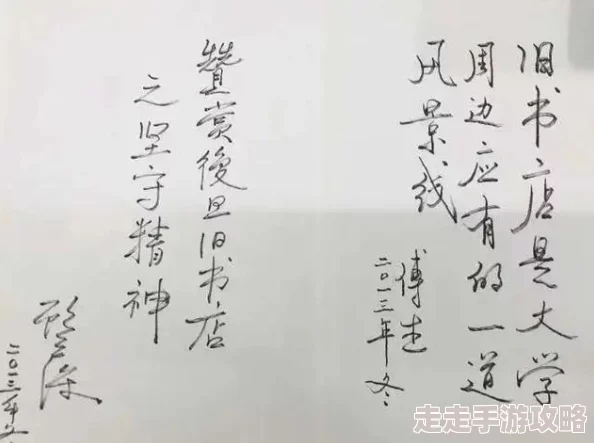 旧书店是大学
周边应有的一道
风景线
傅杰
二〇一三年冬
贊赏復旦旧书店
之坚守精神
走走手游攻略